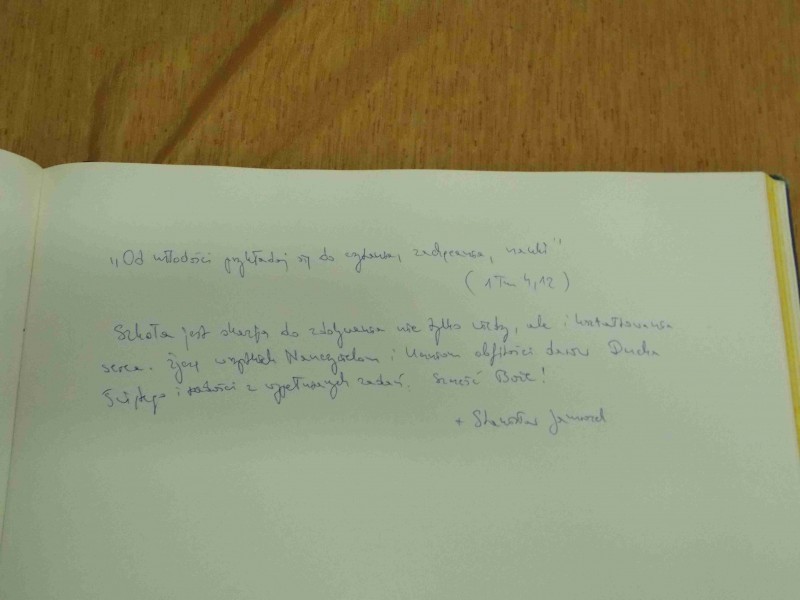 „Od młodości przykładaj się do czytania, zachęcania, nauki"
(1 Tm 4,12)
Szkoła jest okazją do zdobywania nie tylko wiedzy, ale i kształtowania
serca. Życzę wszystkich Nauczycielom i Uczniom obfitości darów Ducha
Świętego i radości z wypełnianych zadań. Szczęść Boże!
+ Stanisław Jamrozek